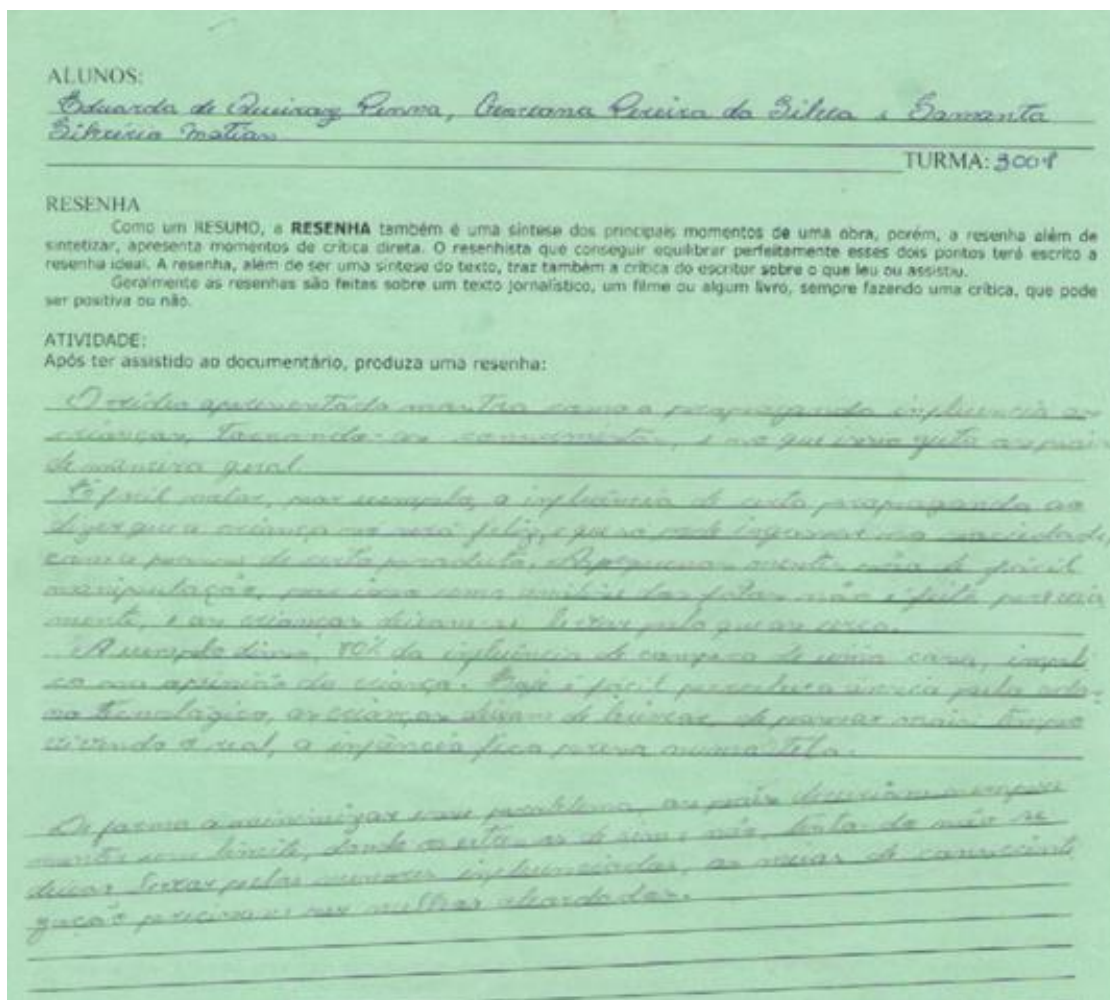 ALUNOS:
Eduarda de Queiroz Penna, Pereira da Silva e Samanta
Silveira Matias
TURMA: 3001
RESENHA
Como um RESUMO, a RESENHA também é uma síntese dos principais momentos de uma obra, porém, a resenha além de
sintetizar, apresenta momentos de crítica direta. O resenhista que conseguir equilibrar perfeitamente esses dois pontos terá escrito a
resenha ideal. A resenha, além de ser uma síntese do texto, traz também a crítica do escritor sobre o que leu ou assistiu.
Geralmente as resenhas são feitas sobre um texto jornalístico, um filme ou algum livro, sempre fazendo uma crítica, que pode
ser positiva ou não.
ATIVIDADE:
Após ter assistido ao documentário, produza uma resenha:
O vídeo apresentado mostra como a propaganda influencia as
crianças, tornando-as consumistas, e no que isso afeta os pais
de maneira geral.
É fácil notar, por exemplo, a influência de certa propaganda ao
dizer que a criança só será feliz, e que só pode ingressar na sociedade
com a posse de certo produto. As pequenas mentes são de fácil
manipulação, por isso uma análise dos fatos não é feita
mente, e as crianças deixam-se levar pelo que as cerca.
A exemplo disso, 80% da influência de compra de uma casa,
ca na opinião da criança. Hoje é fácil perceber a pela
no tecnológico, as crianças deixam de brincar, de passar mais tempo
vivendo o real, a infância fica presa numa tela.
De forma a minimizar esse problema, os pais deveriam sempre
manter um limite, dando de sim e não, não se
deixar levar pelos menores influenciados, os meios de
zação precisam ser melhor abordados.